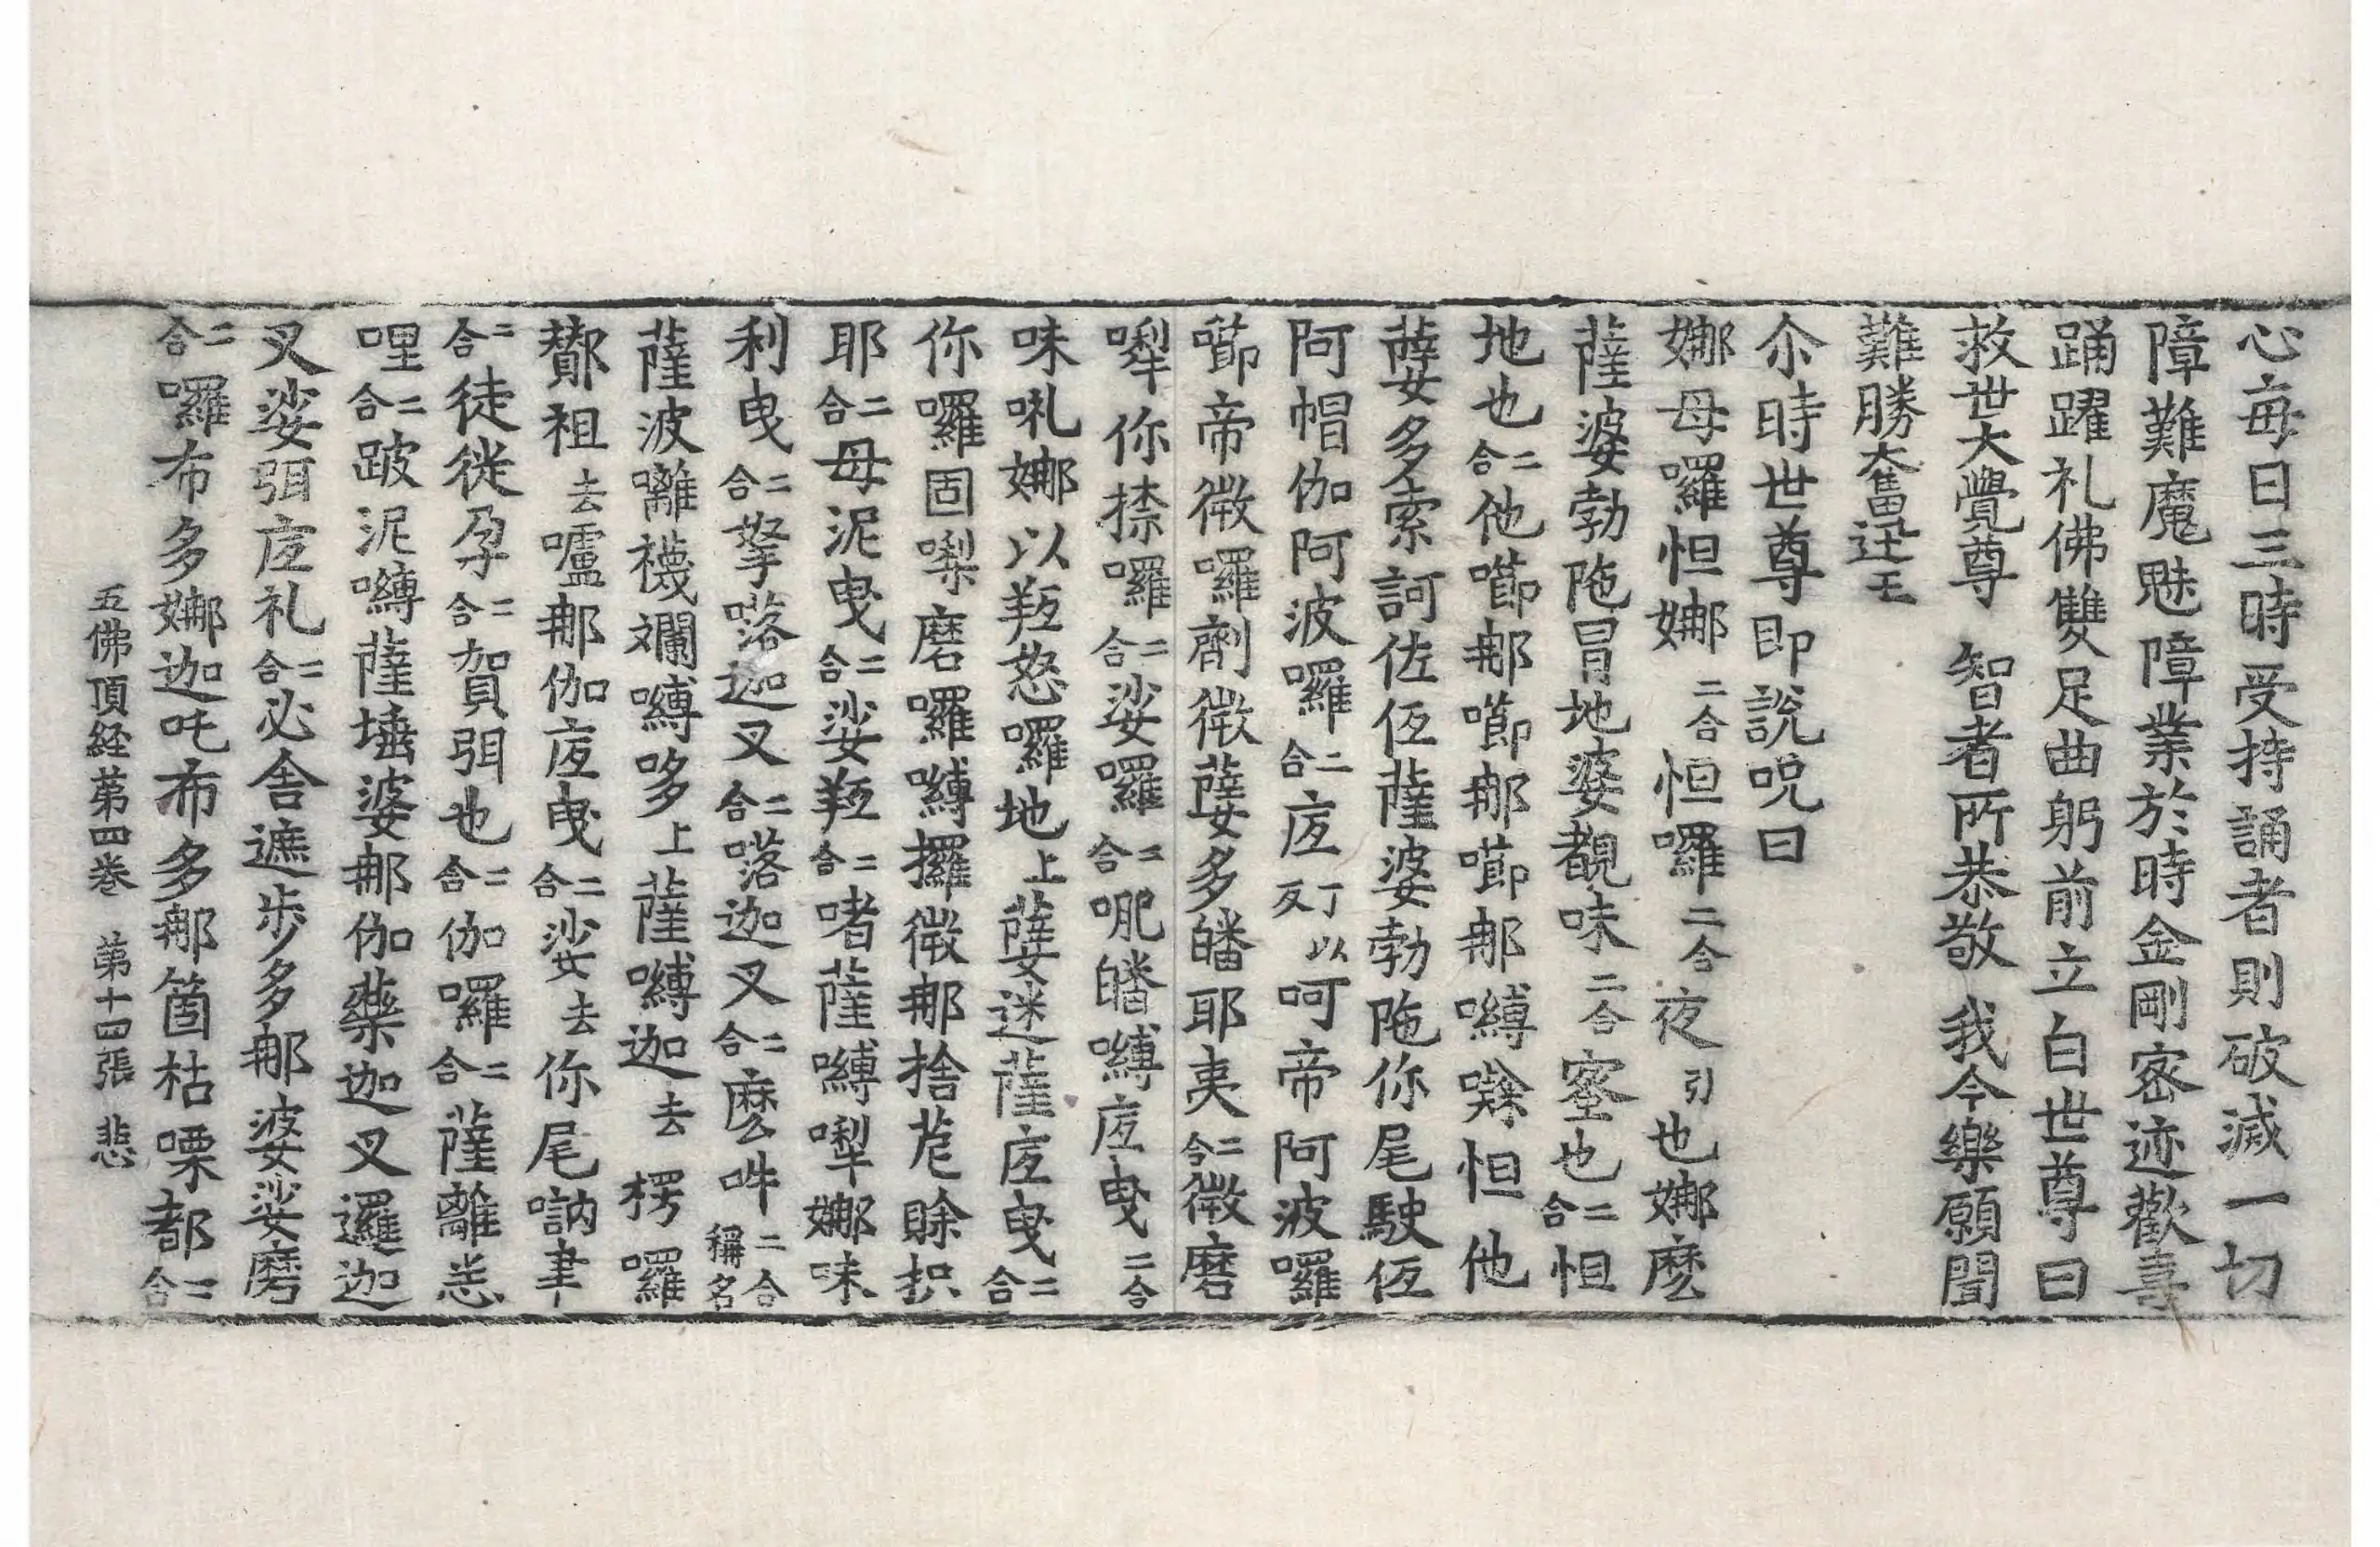 心每日三時受持誦者則破滅一切
障難魔魅障業於時金剛密迹歡喜
踊躍礼佛雙足曲躬前立白世尊曰
救世大覺尊 智者所恭敬 我今樂願聞
難勝奮迅王
尒時世尊即說呪曰
娜母囉怛娜二合怛囉二合夜引也娜麽
薩婆勃陁冒地婆覩味二合窒也二合怛
地也二合他囉那囉那囉那嚩怛他
薩多索訶佐仾薩婆勃陁你尾駛仾
阿帽伽阿波囉二合底丁以反呵帝阿波囉
帝微囉劑微多皤耶夷二合微磨
你捺囉二合娑囉二合皤嚩底曳二合
味吼娜以羝怒囉地上迷薩底曳二合
你囉固磨囉嚩攞微那捨賒抧
耶二合母泥曳二合娑羝二合啫薩嚩娜味
利曳二合拏迦叉二合迦叉二合麽吽二合稱名
薩波襪斕嚩哆上薩嚩迦去楞囉
祖去嚧那伽底曳二合娑去你尾
二合徒徙孕二合賀弭也二合伽囉二合薩離恙
哩二合跛泥嚩薩埵婆那伽藥迦叉邏迦
叉娑弭底礼二合必舍遮步多那婆娑磨
二合囉布多娜迦吒布多那箇枯㗚都二合
五佛頂経苐四巻 苐十四張 悲